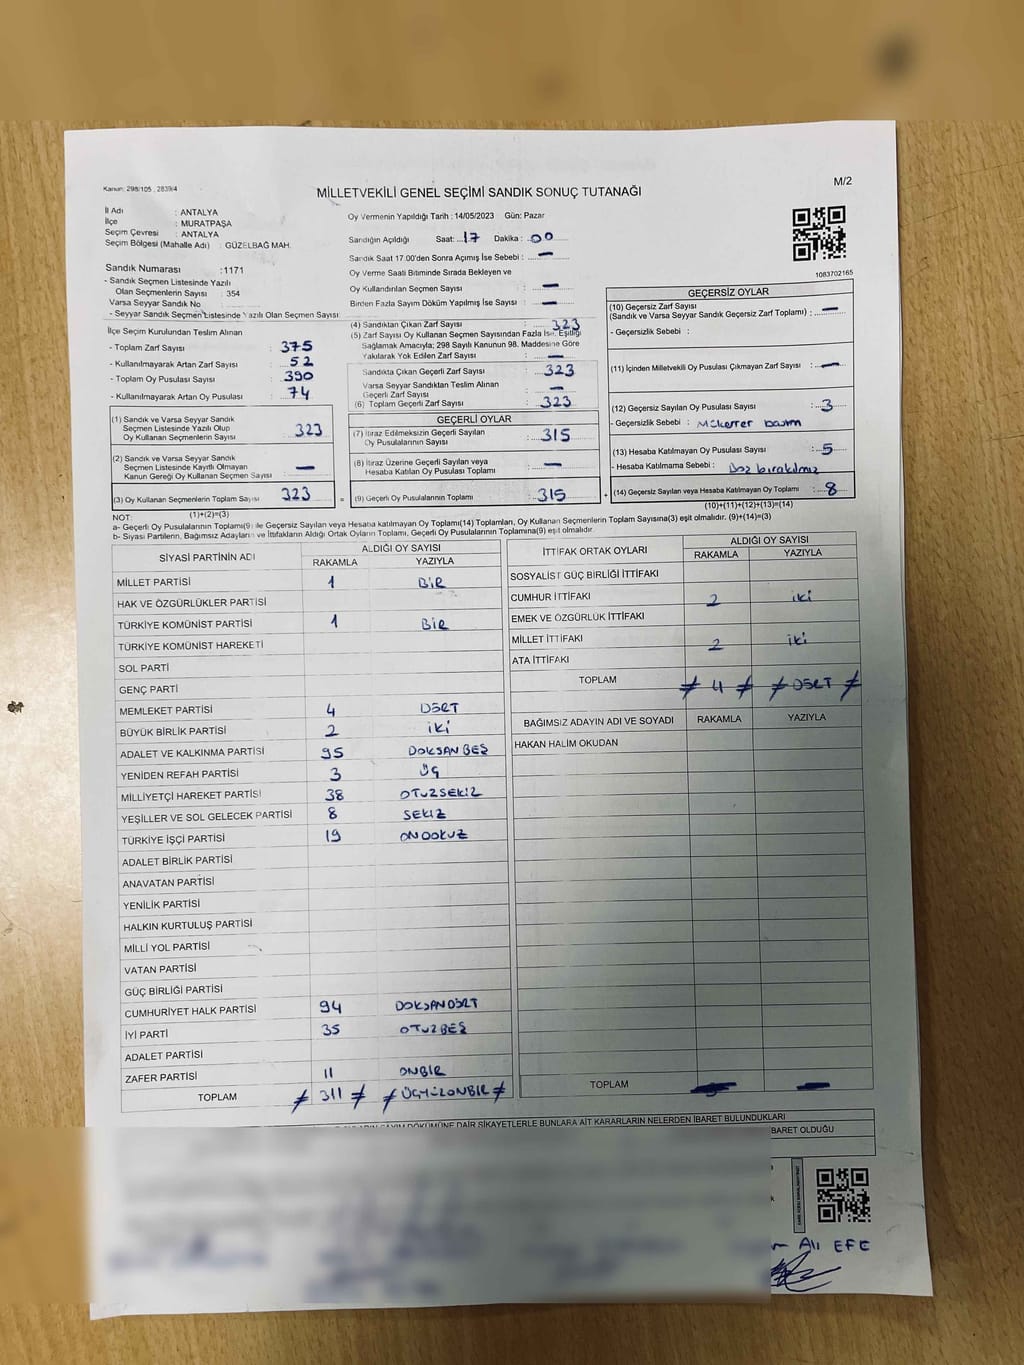 Kanun: 298/105 , 2839/4
M/2
MİLLETVEKİLİ GENEL SEÇİMİ SANDIK SONUÇ TUTANAĞI
İl Adı : ANTALYA
İlçe : MURATPAŞA
Seçim Çevresi : ANTALYA
Seçim Bölgesi (Mahalle Adı) : GÜZELBAĞ MAH.
Sandık Numarası : 1171
- Sandık Seçmen Listesinde Yazılı
Olan Seçmenlerin Sayısı : 354
Varsa Seyyar Sandık No :
- Seyyar Sandık Seçmen Listesinde Yazılı Olan Seçmen Sayısı
İlçe Seçim Kurulundan Teslim Alınan
- Toplam Zarf Sayısı : 375
- Kullanılmayarak Artan Zarf Sayısı : 52
- Toplam Oy Pusulası Sayısı : 390
- Kullanılmayarak Artan Oy Pusulası : 74
(1) Sandık ve Varsa Seyyar Sandık
Seçmen Listesinde Yazılı Olup
Oy Kullanan Seçmenlerin Sayısı : 323
(2) Sandık ve Varsa Seyyar Sandık
Seçmen Listesinde Kayıtlı Olmayan
Kanun Gereği Oy Kullanan Seçmen Sayısı : —
(3) Oy Kullanan Seçmenlerin Toplam Sayısı : 323
(1)+(2)=(3)
Oy Vermenin Yapıldığı Tarih : 14/05/2023 Gün: Pazar
Sandığın Açıldığı Saat: 17 Dakika : 00
Sandık Saat 17.00'den Sonra Açılmış İse Sebebi : —
Oy Verme Saati Bitiminde Sırada Bekleyen ve
Oy Kullandırılan Seçmen Sayısı : —
Birden Fazla Sayım Döküm Yapılmış İse Sayısı : —
(4) Sandıktan Çıkan Zarf Sayısı : 323
(5) Zarf Sayısı Oy Kullanan Seçmen Sayısından Fazla İse, Eşitliği
Sağlamak Amacıyla; 298 Sayılı Kanunun 98. Maddesine Göre
Yakılarak Yok Edilen Zarf Sayısı : —
Sandıkta Çıkan Geçerli Zarf Sayısı : 323
Varsa Seyyar Sandıktan Teslim Alınan
Geçerli Zarf Sayısı : —
(6) Toplam Geçerli Zarf Sayısı : 323
GEÇERLİ OYLAR
(7) İtiraz Edilmeksizin Geçerli Sayılan
Oy Pusulalarının Sayısı : 315
(8) İtiraz Üzerine Geçerli Sayılan veya
Hesaba Katılan Oy Pusulası Toplamı : —
= (9) Geçerli Oy Pusulalarının Toplamı : 315 +
1083702165
GEÇERSİZ OYLAR
(10) Geçersiz Zarf Sayısı
(Sandık ve Varsa Seyyar Sandık Geçersiz Zarf Toplamı) : —
- Geçersizlik Sebebi :
(11) İçinden Milletvekili Oy Pusulası Çıkmayan Zarf Sayısı : —
(12) Geçersiz Sayılan Oy Pusulası Sayısı : 3
- Geçersizlik Sebebi : Mükerrer basım
(13) Hesaba Katılmayan Oy Pusulası Sayısı : 5
- Hesaba Katılmama Sebebi : Boş bırakılmış
(14) Geçersiz Sayılan veya Hesaba Katılmayan Oy Toplamı : 8
(10)+(11)+(12)+(13)=(14)
NOT:
a- Geçerli Oy Pusulalarının Toplamı(9) ile Geçersiz Sayılan veya Hesaba katılmayan Oy Toplamı(14) Toplamları, Oy Kullanan Seçmenlerin Toplam Sayısına(3) eşit olmalıdır. (9)+(14)=(3)
b- Siyasi Partilerin, Bağımsız Adayların ve İttifakların Aldığı Ortak Oyların Toplamı, Geçerli Oy Pusulalarının Toplamına(9) eşit olmalıdır.
SİYASİ PARTİNİN ADI ALDIĞI OY SAYISI
RAKAMLA YAZIYLA
MİLLET PARTİSİ 1 BİR
HAK VE ÖZGÜRLÜKLER PARTİSİ
TÜRKİYE KOMÜNİST PARTİSİ 1 BİR
TÜRKİYE KOMÜNİST HAREKETİ
SOL PARTİ
GENÇ PARTİ
MEMLEKET PARTİSİ 4 DÖRT
BÜYÜK BİRLİK PARTİSİ 2 İKİ
ADALET VE KALKINMA PARTİSİ 95 DOKSAN BEŞ
YENİDEN REFAH PARTİSİ 3 ÜÇ
MİLLİYETÇİ HAREKET PARTİSİ 38 OTUZSEKİZ
YEŞİLLER VE SOL GELECEK PARTİSİ 8 SEKİZ
TÜRKİYE İŞÇİ PARTİSİ 19 ONDOKUZ
ADALET BİRLİK PARTİSİ
ANAVATAN PARTİSİ
YENİLİK PARTİSİ
HALKIN KURTULUŞ PARTİSİ
MİLLİ YOL PARTİSİ
VATAN PARTİSİ
GÜÇ BİRLİĞİ PARTİSİ
CUMHURİYET HALK PARTİSİ 94 DOKSANDÖRT
İYİ PARTİ 35 OTUZBEŞ
ADALET PARTİSİ
ZAFER PARTİSİ 11 ONBİR
TOPLAM ≠ 311 ≠ ≠ ÜÇYÜZONBİR ≠
İTTİFAK ORTAK OYLARI ALDIĞI OY SAYISI
RAKAMLA YAZIYLA
SOSYALİST GÜÇ BİRLİĞİ İTTİFAKI
CUMHUR İTTİFAKI 2 iki
EMEK VE ÖZGÜRLÜK İTTİFAKI
MİLLET İTTİFAKI 2 iki
ATA İTTİFAKI
TOPLAM ≠ 4 ≠ ≠ DÖRT ≠
BAĞIMSIZ ADAYIN ADI VE SOYADI RAKAMLA YAZIYLA
HAKAN HALİM OKUDAN
TOPLAM — —
SAYIM DÖKÜMÜNE DAİR ŞİKAYETLERLE BUNLARA AİT KARARLARIN NELERDEN İBARET BULUNDUKLARI
BARET OLDUĞU
Ali EFE